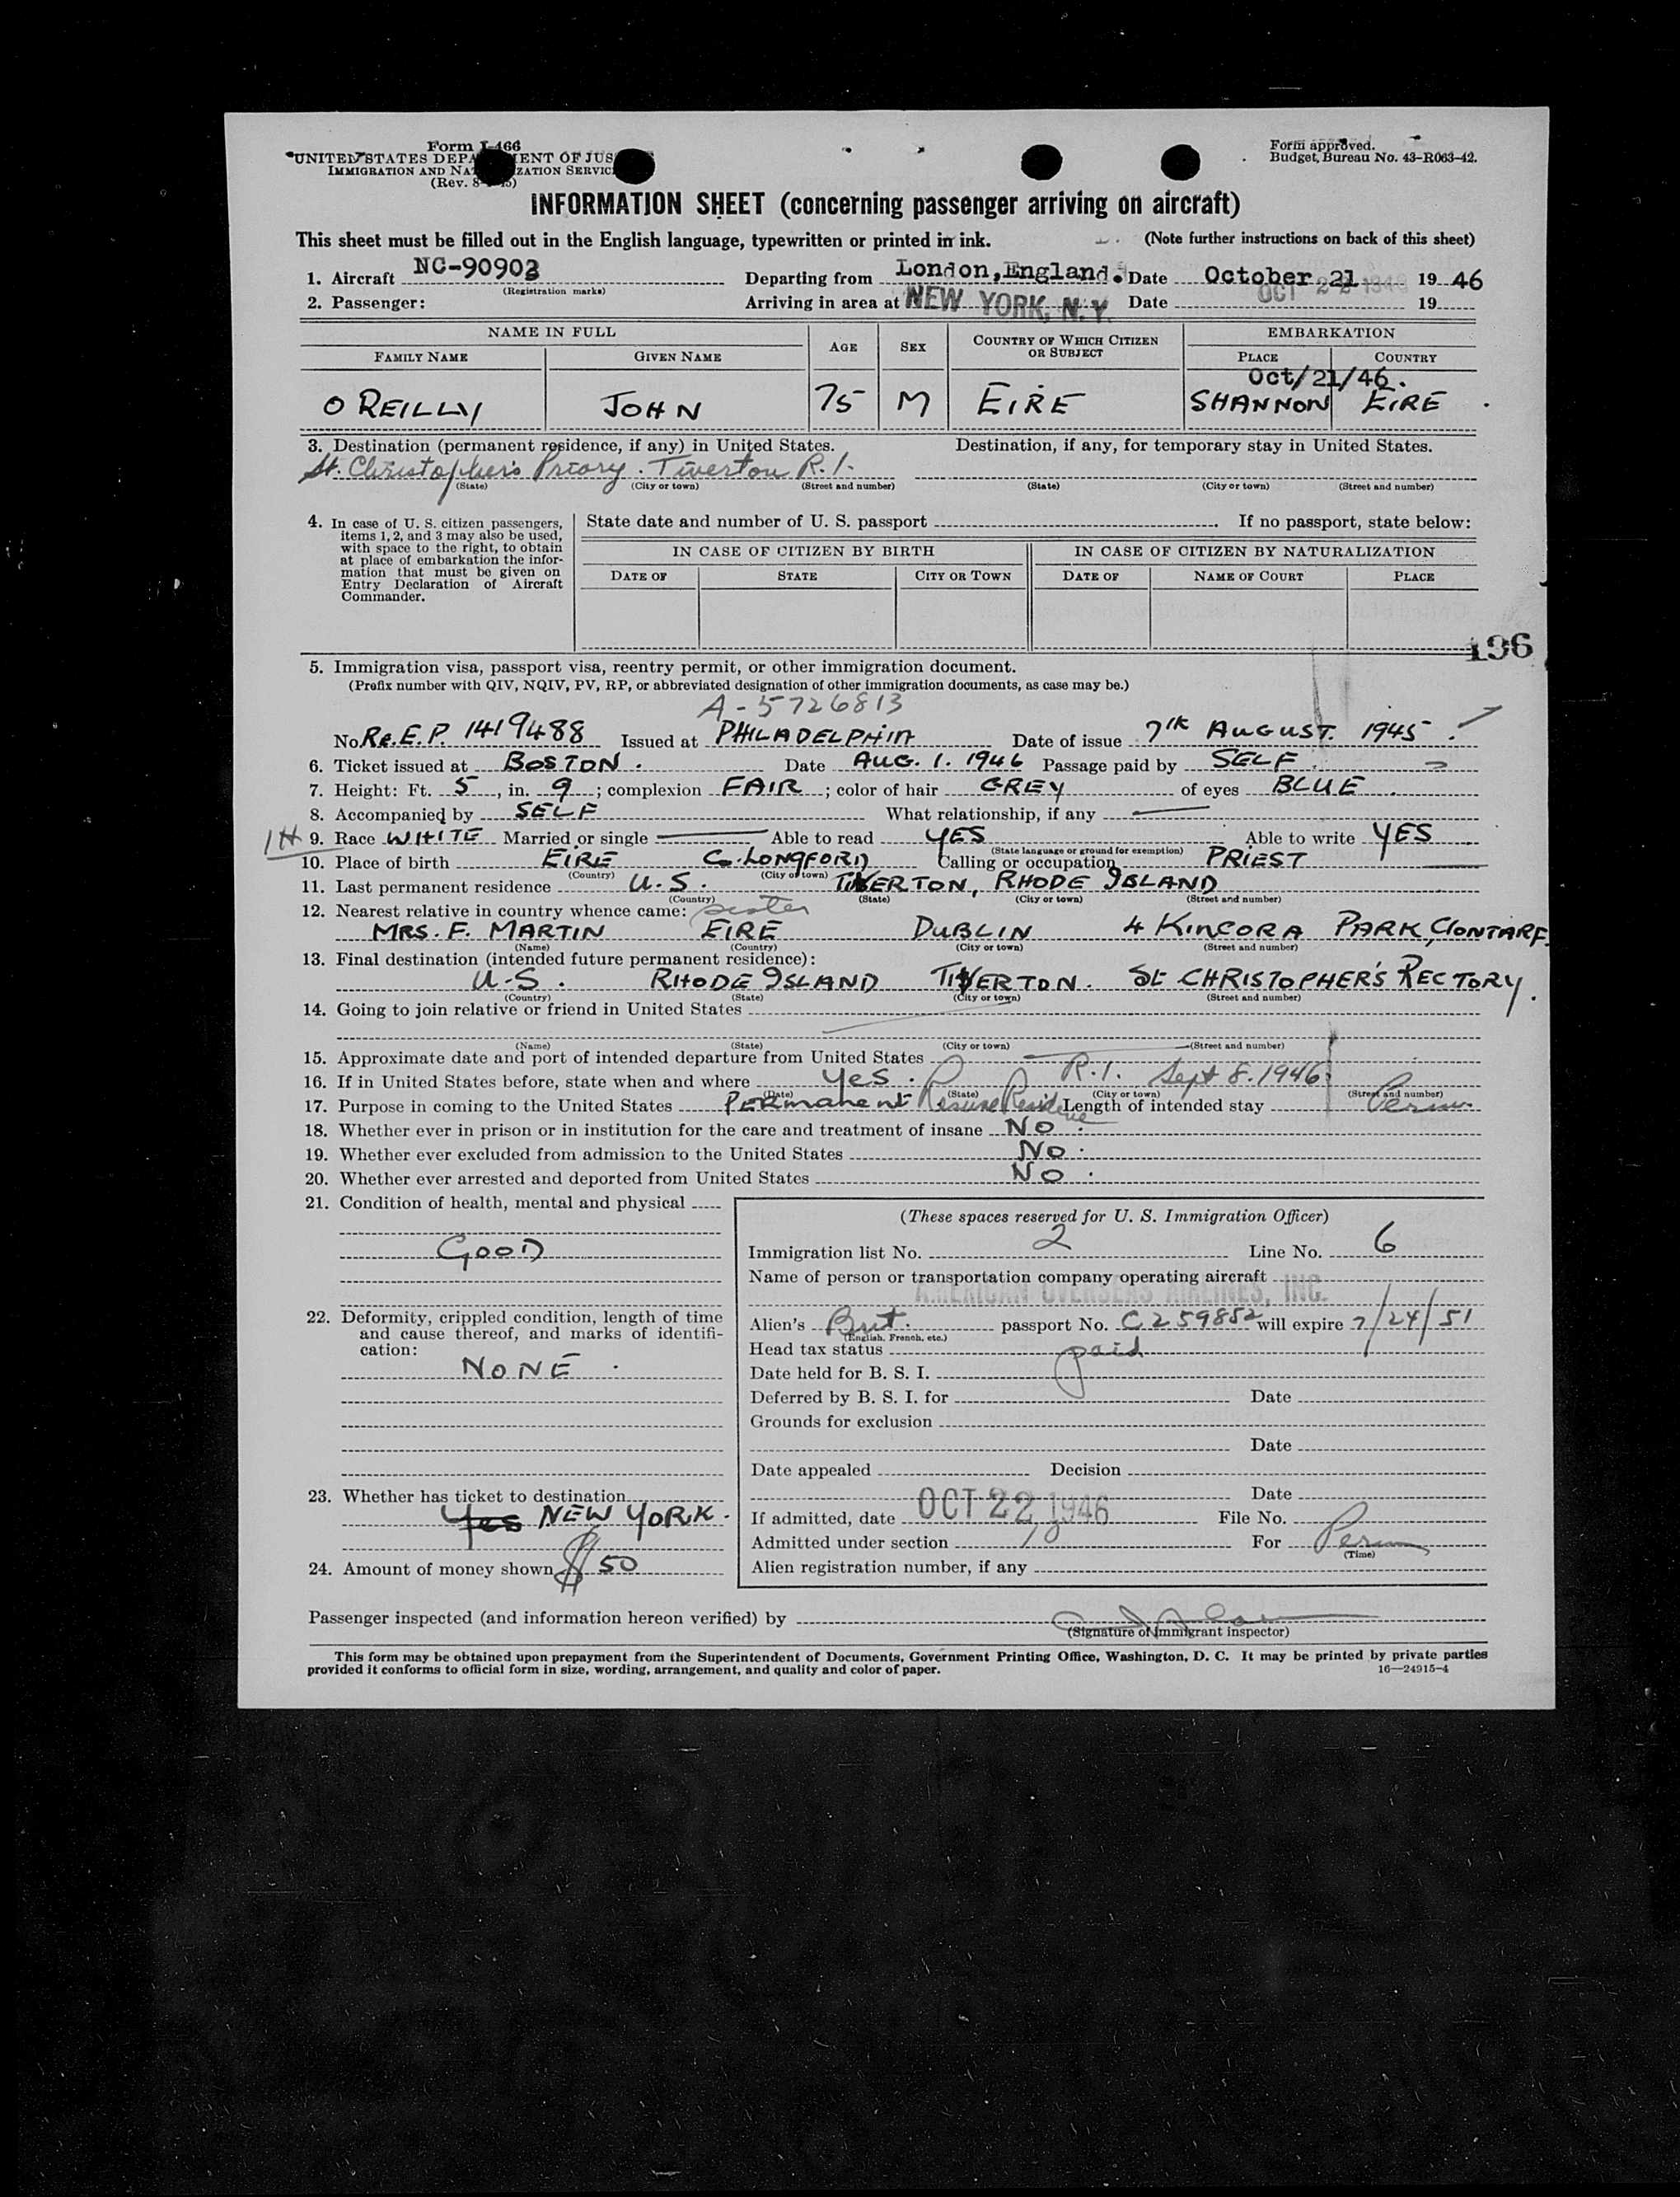 Form I-466
UNITED STATES DEPA ENT OF JUS
IMMIGRATION AND NAT ZATION SERVIC
(Rev. 8- 5)
Form approved.
Budget Bureau No. 43-R063-42.
INFORMATION SHEET (concerning passenger arriving on aircraft)
This sheet must be filled out in the English language, typewritten or printed in ink. (Note further instructions on back of this sheet)
1. Aircraft NC-90903 Departing from London, England. Date October 21 19 46
(Registration marks)
2. Passenger: Arriving in area at NEW YORK, N.Y. Date OCT 22 1946 19
NAME IN FULL AGE SEX COUNTRY OF WHICH CITIZEN OR SUBJECT EMBARKATION
FAMILY NAME GIVEN NAME PLACE COUNTRY
Oct/21/46.
O REILLY JOHN 75 M EIRE SHANNON EIRE
3. Destination (permanent residence, if any) in United States. Destination, if any, for temporary stay in United States.
St. Christopher's Priory. Tiverton R.I.
(State) (City or town) (Street and number) (State) (City or town) (Street and number)
4. In case of U. S. citizen passengers, items 1, 2, and 3 may also be used, with space to the right, to obtain at place of embarkation the information that must be given on Entry Declaration of Aircraft Commander.
State date and number of U. S. passport . If no passport, state below:
IN CASE OF CITIZEN BY BIRTH IN CASE OF CITIZEN BY NATURALIZATION
DATE OF STATE CITY OR TOWN DATE OF NAME OF COURT PLACE
196
5. Immigration visa, passport visa, reentry permit, or other immigration document.
(Prefix number with QIV, NQIV, PV, RP, or abbreviated designation of other immigration documents, as case may be.)
A-5726813
No. Re.E.P. 1419488 Issued at PHILADELPHIA Date of issue 7th AUGUST. 1945.
6. Ticket issued at BOSTON. Date AUG. 1. 1946 Passage paid by SELF
7. Height: Ft. 5, in. 9; complexion FAIR; color of hair GREY of eyes BLUE
8. Accompanied by SELF What relationship, if any
1H 9. Race WHITE Married or single Able to read YES Able to write YES
(State language or ground for exemption)
10. Place of birth EIRE Co. LONGFORD Calling or occupation PRIEST
(Country) (City or town)
11. Last permanent residence U.S. TIVERTON, RHODE ISLAND
(Country) (State) (City or town) (Street and number)
12. Nearest relative in country whence came: sister
MRS. F. MARTIN EIRE DUBLIN 4 KINCORA PARK, CLONTARF.
(Name) (Country) (City or town) (Street and number)
13. Final destination (intended future permanent residence):
U.S. RHODE ISLAND TIVERTON. St CHRISTOPHER'S RECTORY.
(Country) (State) (City or town) (Street and number)
14. Going to join relative or friend in United States
(Name) (State) (City or town) (Street and number)
15. Approximate date and port of intended departure from United States
16. If in United States before, state when and where Yes. R.I. Sept 8. 1946
(Date) (State) (City or town) (Street and number)
17. Purpose in coming to the United States PERmanent Resume Residence Length of intended stay Perm
18. Whether ever in prison or in institution for the care and treatment of insane NO.
19. Whether ever excluded from admission to the United States NO.
20. Whether ever arrested and deported from United States NO.
21. Condition of health, mental and physical
GOOD
22. Deformity, crippled condition, length of time and cause thereof, and marks of identification:
NONE.
23. Whether has ticket to destination
Yes NEW YORK.
24. Amount of money shown $ 50
(These spaces reserved for U. S. Immigration Officer)
Immigration list No. 2 Line No. 6
Name of person or transportation company operating aircraft
AMERICAN OVERSEAS AIRLINES, INC.
Alien's Brit. passport No. C259852 will expire 7/24/51
(English, French, etc.)
Head tax status paid
Date held for B. S. I.
Deferred by B. S. I. for Date
Grounds for exclusion
Date
Date appealed Decision
Date
If admitted, date OCT 22 1946 File No.
Admitted under section 10 For Perm
(Time)
Alien registration number, if any
Passenger inspected (and information hereon verified) by
(Signature of immigrant inspector)
This form may be obtained upon prepayment from the Superintendent of Documents, Government Printing Office, Washington, D. C. It may be printed by private parties
provided it conforms to official form in size, wording, arrangement, and quality and color of paper. 16—24915-4